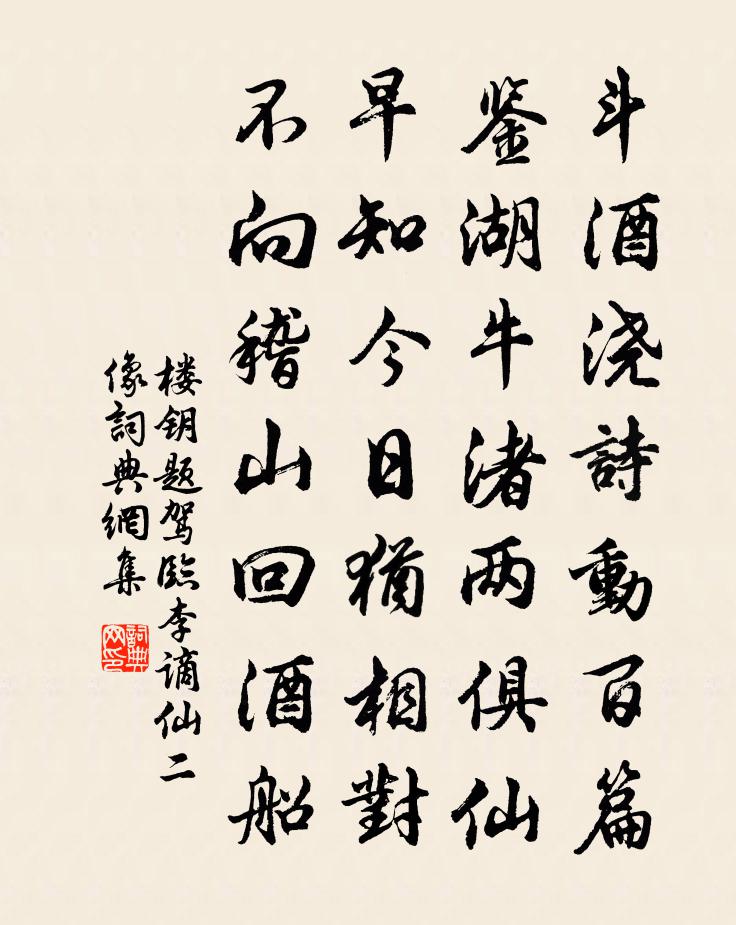 斗酒浇詩動百篇
鉴湖牛渚两俱仙
早知今日猶相對
不向稽山回酒船
楼钥题驾臨李谪仙二
像詞典網集
詞典
网印